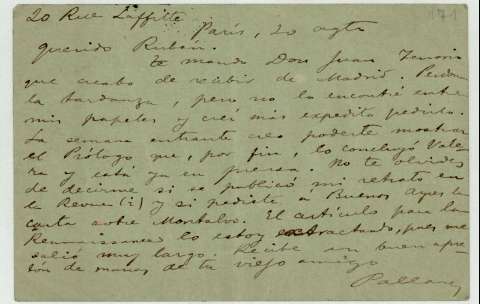 20 Rue Laffitte
171
París, 20 agto
Querido Rubén.
Te mando Don Juan Tenorio
que acabo de recibir de Madrid. Perdona
la tardanza, pero no lo encontré entre
mis papeles y creí más expedito pedirlo.
La semana entrante creo poderte mostrar
el Prólogo que, por fin, lo concluyó Vale-
ra y está ya en prensa. No te olvides
de decirme si se publicó mi retrato en
la Revue (i) y si pediste a Buenos Ayres la
carta sobre Montalvo. El artículo para la
Renaissance lo estoy extractando, pues me
salió muy largo. Recibe un buen apre-
tón de manos de tu viejo amigo